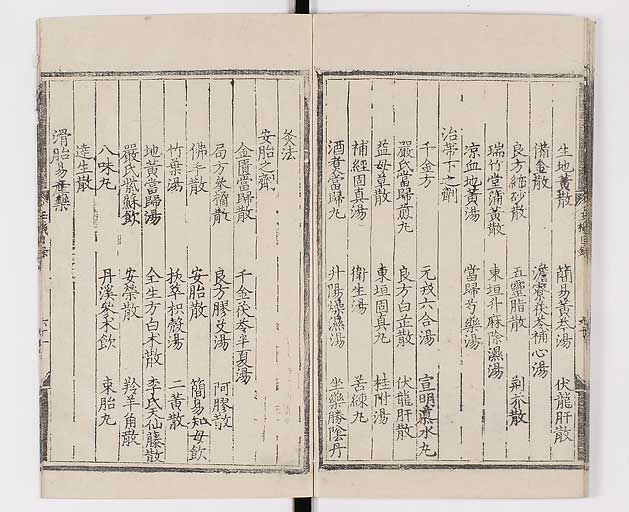 生地黃散 簡易黃芩湯 伏龍肝散
備金散 澹寮茯苓補心湯
良方縮砂散 五靈脂散 荆芥散
瑞竹堂蒲黃散 東垣升麻除濕湯
凉血地黃湯 當歸芍藥湯
治帶下之劑
千金方 元戎六合湯 宣明藁水丸
嚴氏當歸煎丸 良方白芷散 伏龍肝散
益母草散 東垣固真丸 桂附湯
補經固真湯 衛生湯 苦練丸
酒煮當歸丸 升陽燥濕湯 坐藥勝陰丹
灸法
安胎之劑
金匱當歸散 千金茯苓半夏湯
局方 良方膠艾湯 阿膠散
佛手散 安胎散 簡易知母飲
竹葉湯 枳殼湯 二黃散
地黃當歸湯 全生方白朮散 李氏天仙藤散
嚴氏紫蘇飲 安榮散 羚羊角散
八味丸 丹溪參朮飲 束胎丸
達生散
滑胎易產藥